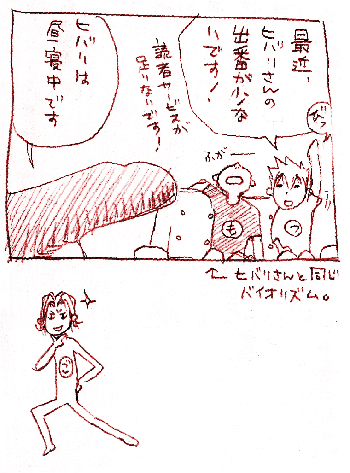 最近、
ヒバリさんの
出番が少な
いです！
びっ
読者サービスが
足りないです！
ふがー
ヒバリは
昼寝中です
も
つ
←ヒバリさんと同じ
バイオリズム。
ご